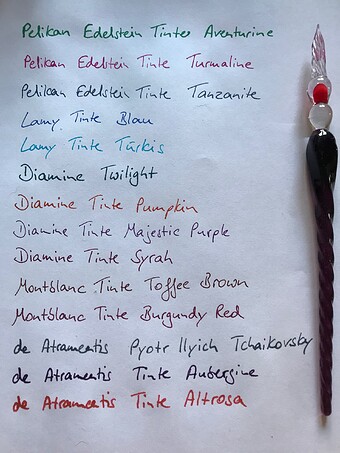 Pelikan Edelstein Tinte Aventurine
Pelikan Edelstein Tinte Turmaline
Pelikan Edelstein Tinte Tanzanite
Lamy Tinte Blau
Lamy Tinte Türkis
Diamine Twilight
Diamine Tinte Pumpkin
Diamine Tinte Majestic Purple
Diamine Tinte Syrah
Montblanc Tinte Toffee Brown
Montblanc Tinte Burgundy Red
de Atramentis Pyotr Ilyich Tchaikovsky
de Atramentis Tinte Aubergine
de Atramentis Tinte Altrosa